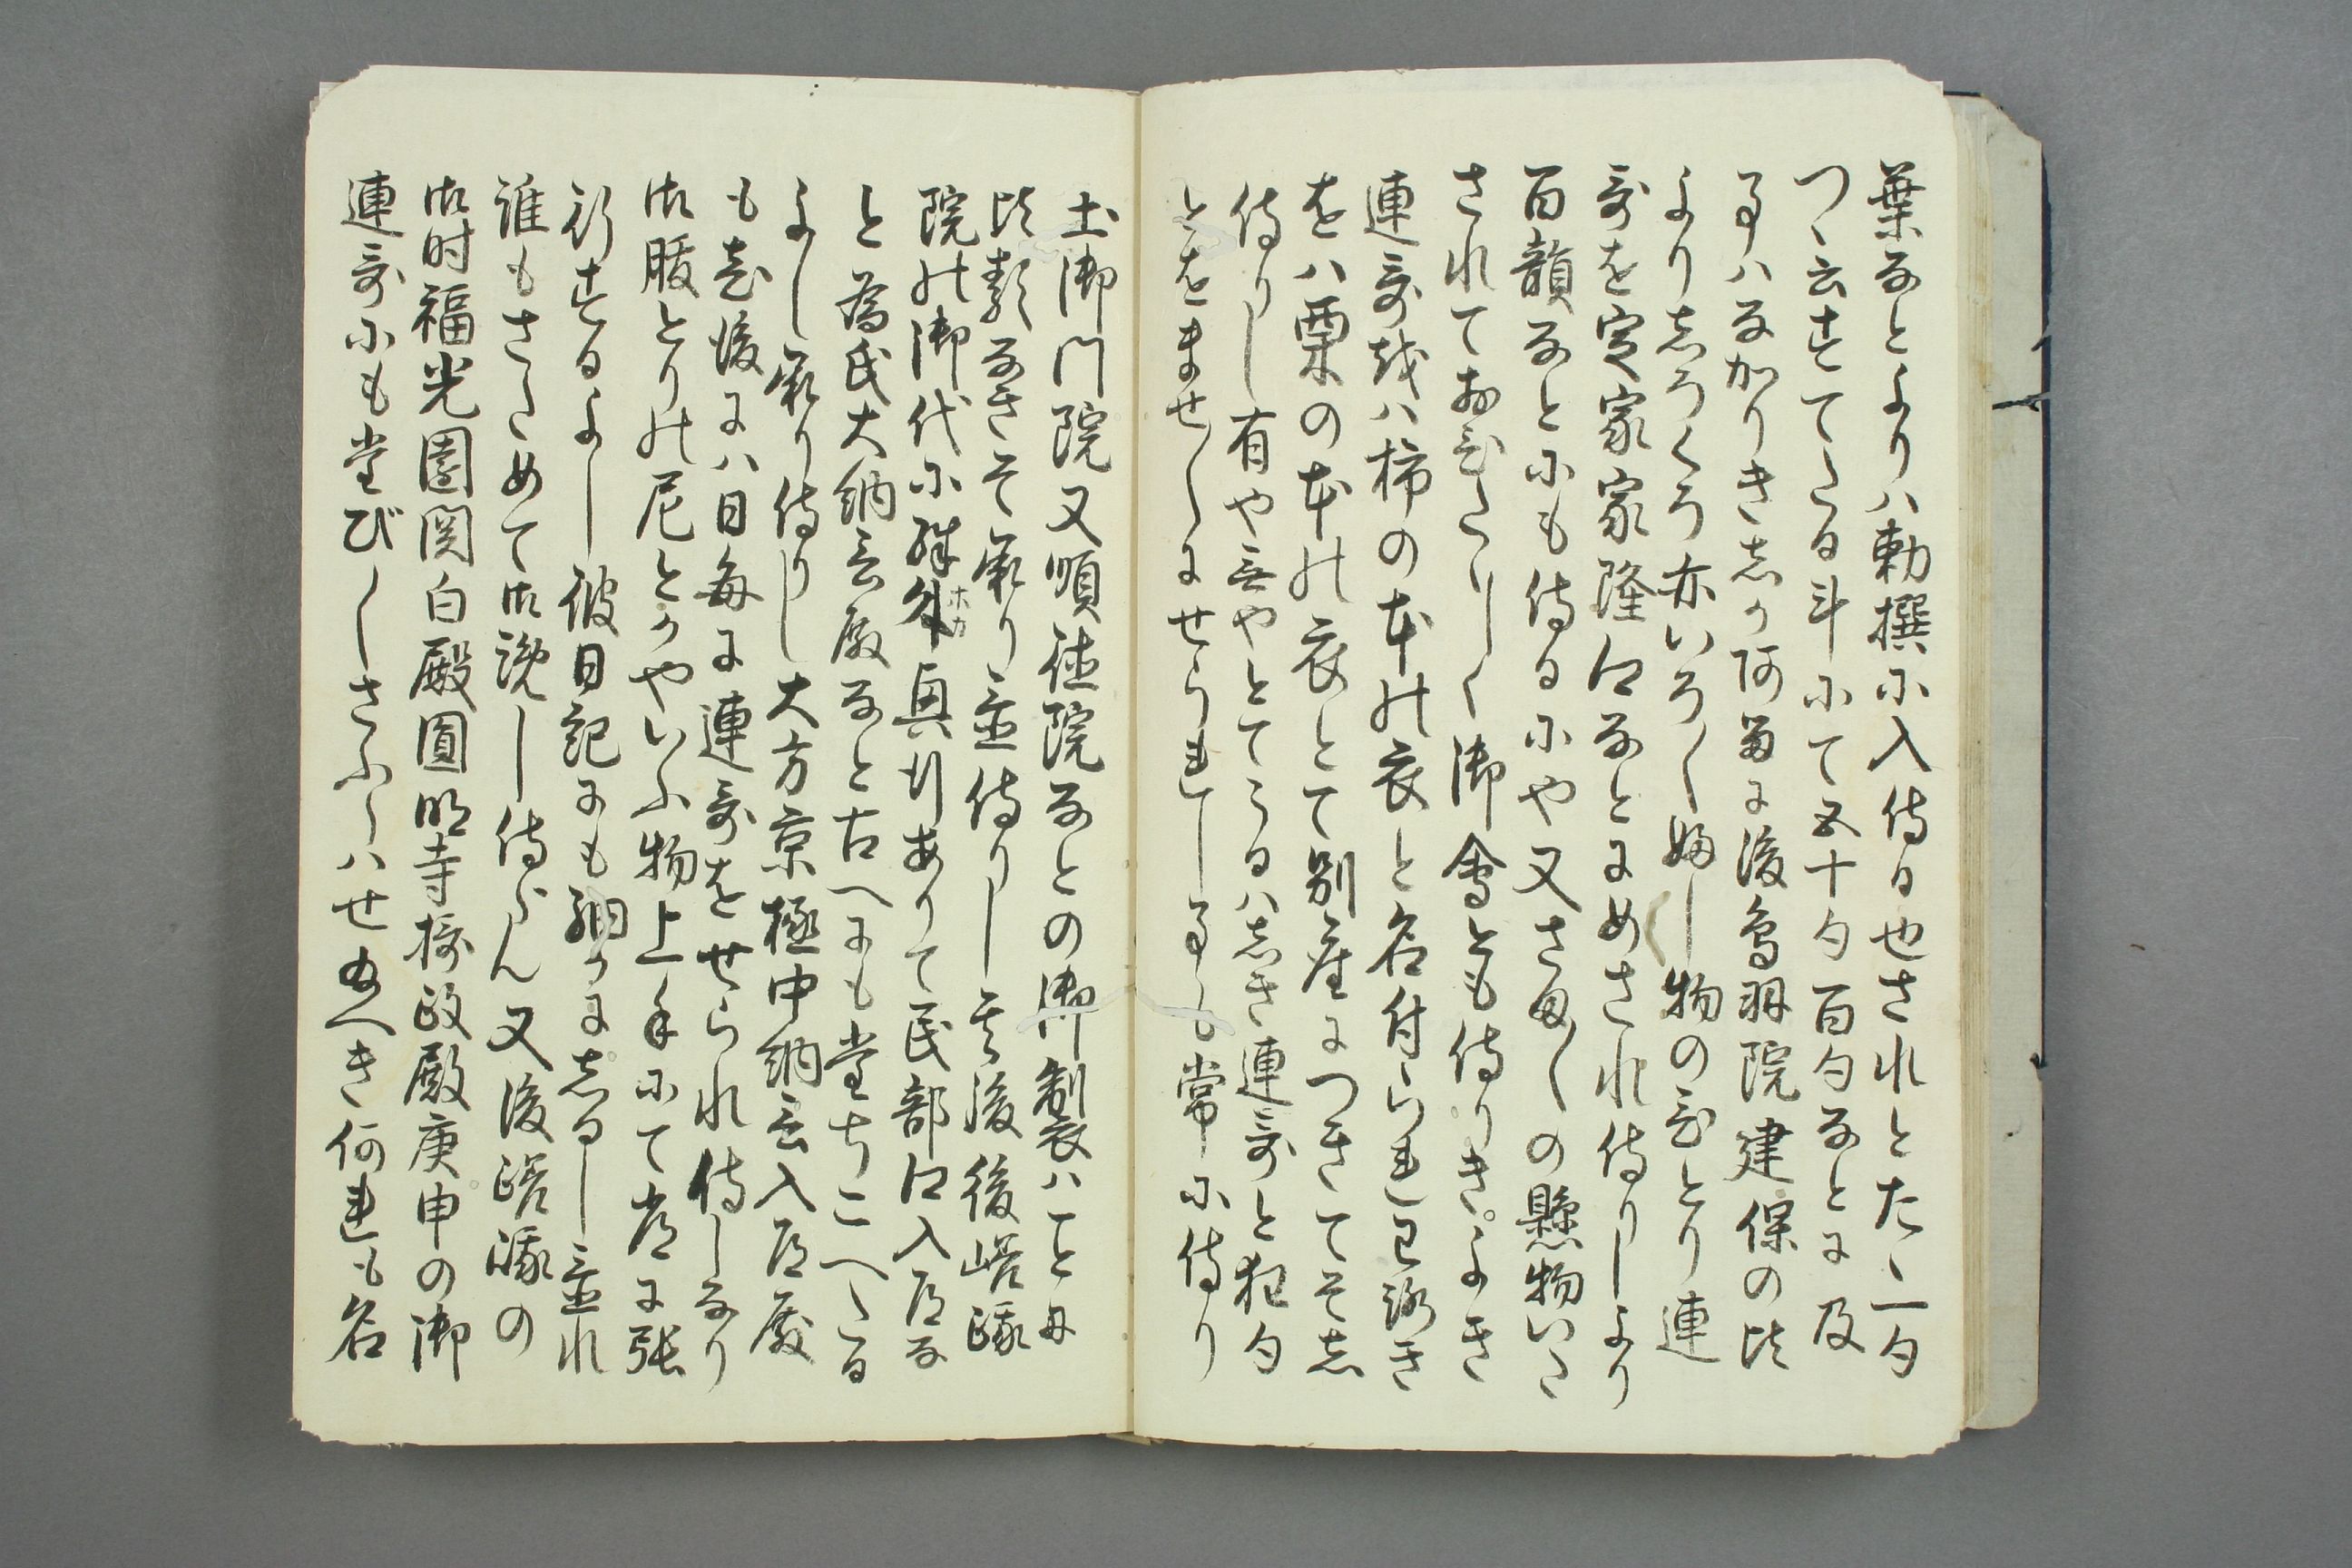 葉なとよりハ勅撰に入侍る也されとたゝ一句
つゝ云すてたる斗にて五十句百句なとに及
事ハなかりきしか阿るに後鳥羽院建保の比
よりしろくろ亦いろ〳〵婦し物の哥とり連
哥を定家家隆卿なとにめされ侍りしより
百韻なとにも侍るにや又さま〳〵の懸物いた
されておひたゝしく御會とも侍りきよき
連哥越ハ柿の本の衆と名付られわろき
をハ栗の本の衆とて別座につきてそし
侍りし有や無やとてうるハしき連哥と狂句
とをませ〳〵にせられし事も常に侍り
土御門院又順徳院なとの御製ハことに
比類なきそ承り並侍りし其後後嵯峨
院の御代に殊外ホカ興行ありて民部卿入道な
と為氏大納言殿なと古へにも堂ちこへたる
よし承り侍りし大方京極中納言入道殿
も老後にハ日毎に連哥をせられ侍しなり
御腹とりの尼とかやいふ物上手にて常に張
行するよし彼日記にも細かにしるし並れ
誰もさためて御覧し侍らん又後嵯峨の
御時福光園関白殿圓明寺摂政殿庚申の御
連哥にも堂び〳〵さふらハせ給へき何連も名